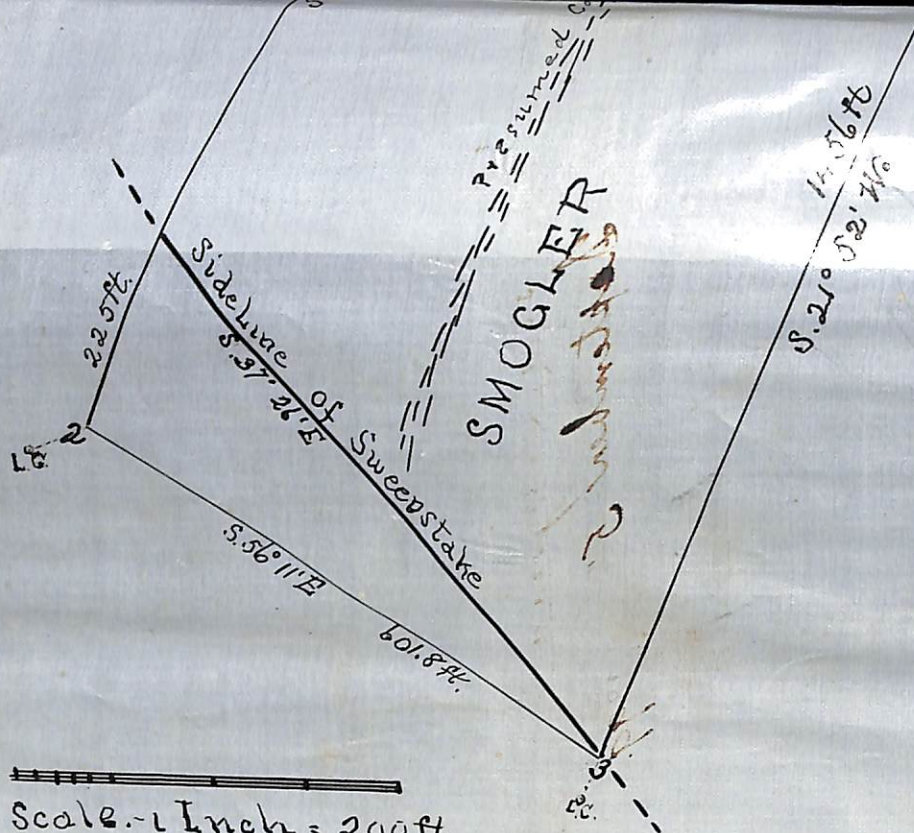 Presumed
SMOGLER
S.21° 52' W.
225 ft.
Side Line of Sweepstake
S.37° 26' E
2
S.56° 11' E
601.8 ft.
3
Scale.-1 Inch = 200ft